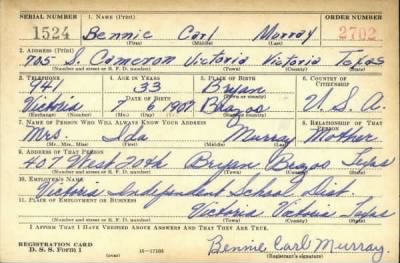 SERIAL NUMBER 1. NAME (Print) ORDER NUMBER
1524 Bennie Carl Murray 2702
(First) (Middle) (Last)
2. ADDRESS (Print)
705 S. Cameron Victoria Victoria Texas
(Number and street or R. F. D. number) (Town) (County) (State)
3. TELEPHONE 4. AGE IN YEARS 5. PLACE OF BIRTH 6. COUNTRY OF CITIZENSHIP
941 33 Bryan
(Town or county)
DATE OF BIRTH
Victoria 7 6 1907 Brazos U. S. A.
(Exchange) (Number) (Mo.) (Day) (Yr.) (State or country)
7. NAME OF PERSON WHO WILL ALWAYS KNOW YOUR ADDRESS 8. RELATIONSHIP OF THAT PERSON
Mrs. Ida Murray Mother
(Mr., Mrs., Miss) (First) (Middle) (Last)
9. ADDRESS OF THAT PERSON
407 West 20th Bryan Brazos Texas
(Number and street or R. F. D. number) (Town) (County) (State)
10. EMPLOYER'S NAME
Victoria Independent School Dist.
11. PLACE OF EMPLOYMENT OR BUSINESS
Victoria Victoria Texas
(Number and street or R. F. D. number) (Town) (County) (State)
I AFFIRM THAT I HAVE VERIFIED ABOVE ANSWERS AND THAT THEY ARE TRUE.
REGISTRATION CARD
D. S. S. Form 1 (over) 16-17105 Bennie Carl Murray
(Registrant's signature)